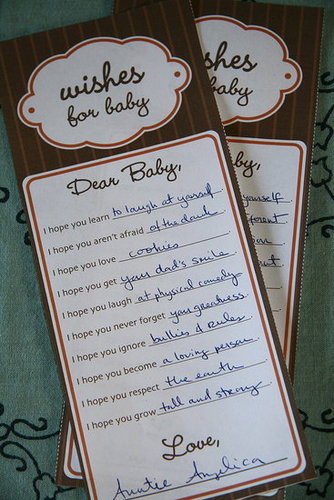 wishes
for baby
Dear Baby,
I hope you learn to laugh at yourself.
I hope you aren't afraid of the dark.
I hope you love cookies.
I hope you get your dad's smile.
I hope you laugh at physical comedy.
I hope you never forget your goodness.
I hope you ignore bullies & rules.
I hope you become a loving person.
I hope you respect the earth.
I hope you grow tall and strong.
Love,
Auntie Angelica
shes
baby
by,
yourself